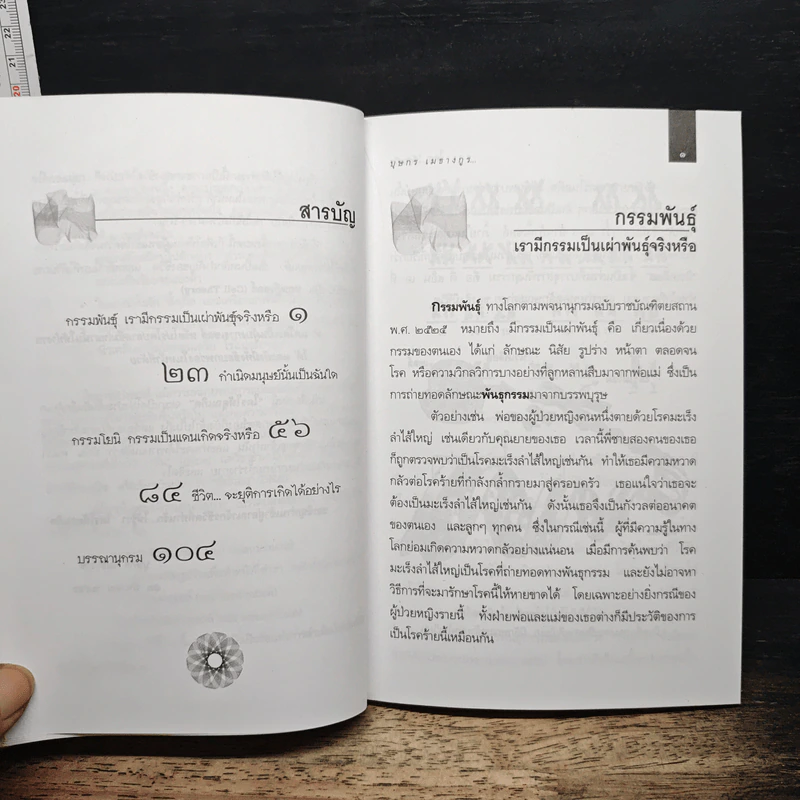 23
22
21
20
สารบัญ
กรรมพันธุ์ เรามีกรรมเป็นเผ่าพันธุ์จริงหรือ ๑
๒๓ กำเนิดมนุษย์นั้นเป็นฉันใด
กรรมโยนิ กรรมเป็นแดนเกิดจริงหรือ ๕๖
๘๔ ชีวิต... จะยุติการเกิดได้อย่างไร
บรรณานุกรม ๑๐๔
บุษกร เมธางกูร..
๑
กรรมพันธุ์
เรามีกรรมเป็นเผ่าพันธุ์จริงหรือ
กรรมพันธุ์ ทางโลกตามพจนานุกรมฉบับราชบัณฑิตยสถาน
พ.ศ. ๒๕๒๕ หมายถึง มีกรรมเป็นเผ่าพันธุ์ คือ เกี่ยวเนื่องด้วย
กรรมของตนเอง ได้แก่ ลักษณะ นิสัย รูปร่าง หน้าตา ตลอดจน
โรค หรือความวิกลวิการบางอย่างที่ลูกหลานสืบมาจากพ่อแม่ ซึ่งเป็น
การถ่ายทอดลักษณะพันธุกรรมมาจากบรรพบุรุษ
ตัวอย่างเช่น พ่อของผู้ป่วยหญิงคนหนึ่งตายด้วยโรคมะเร็ง
ลำไส้ใหญ่ เช่นเดียวกับคุณยายของเธอ เวลานี้พี่ชายสองคนของเธอ
ก็ถูกตรวจพบว่าเป็นโรคมะเร็งลำไส้ใหญ่เช่นกัน ทำให้เธอมีความหวาด
กลัวต่อโรคร้ายที่กำลังกล้ำกรายมาสู่ครอบครัว เธอแน่ใจว่าเธอจะ
ต้องเป็นมะเร็งลำไส้ใหญ่เช่นกัน ดังนั้นเธอจึงเป็นกังวลต่ออนาคต
ของตนเอง และลูกๆ ทุกคน ซึ่งในกรณีเช่นนี้ ผู้ที่มีความรู้ในทาง
โลกย่อมเกิดความหวาดกลัวอย่างแน่นอน เมื่อมีการค้นพบว่า โรค
มะเร็งลำไส้ใหญ่เป็นโรคที่ถ่ายทอดทางพันธุกรรม และยังไม่อาจหา
วิธีการที่จะมารักษาโรคนี้ให้หายขาดได้ โดยเฉพาะอย่างยิ่งกรณีของ
ผู้ป่วยหญิงรายนี้ ทั้งฝ่ายพ่อและแม่ของเธอต่างก็มีประวัติของการ
เป็นโรคร้ายนี้เหมือนกัน